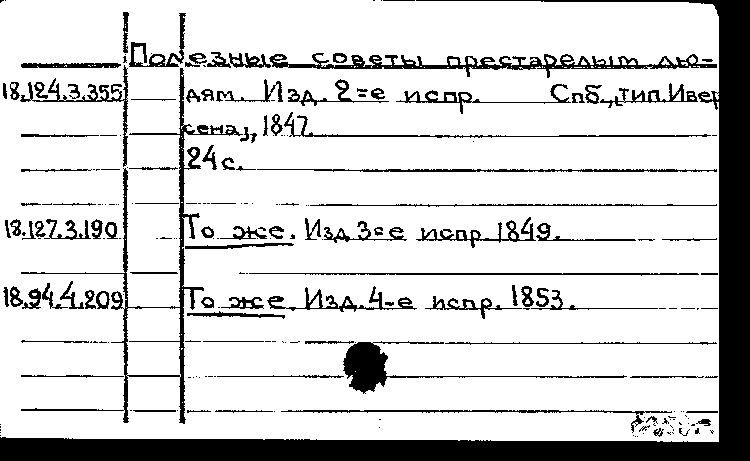 Полезные советы престарелым лю-
18.124.3.355 дям. Изд. 2=е испр. Спб., [тип. Ивер
сена], 1847.
24 с.
18.127.3.190 То же. Изд. 3=е испр. 1849.
18.94.4.209 То же. Изд. 4-е испр. 1853.